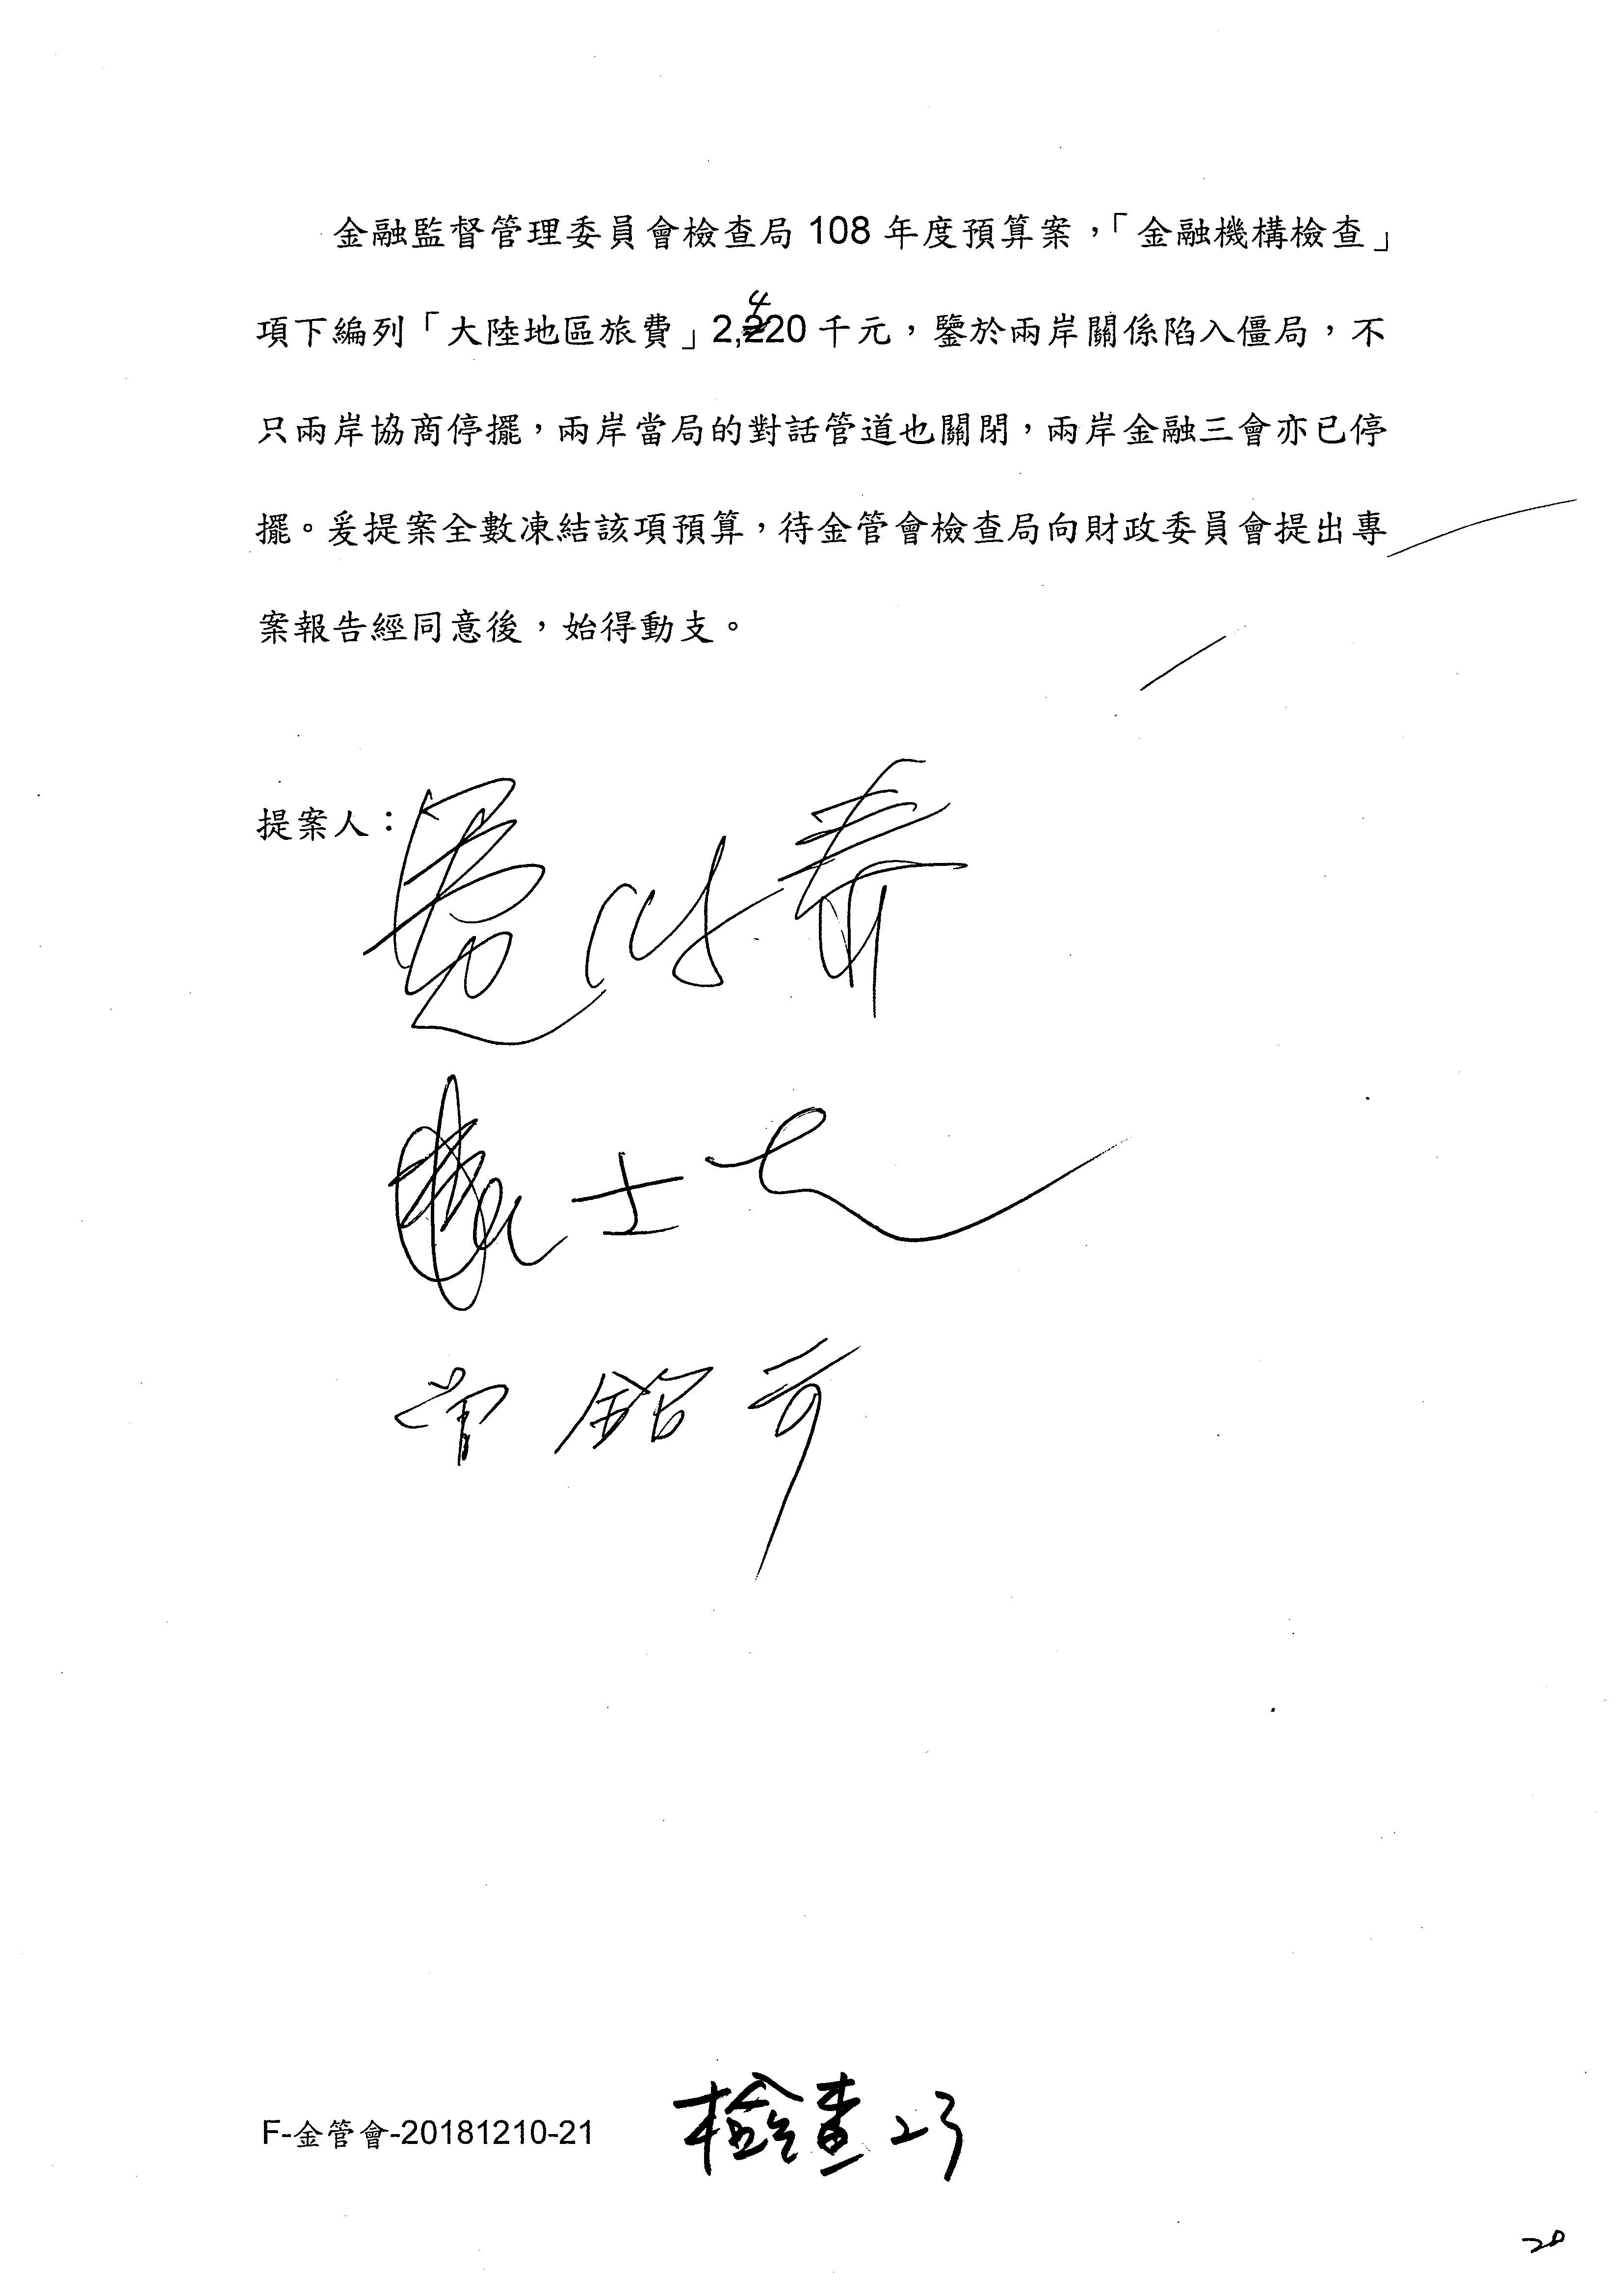 金融監督管理委員會檢查局 108 年度預算案，「金融機構檢查」
項下編列「大陸地區旅費」2,420 千元，鑒於兩岸關係陷入僵局，不
只兩岸協商停擺，兩岸當局的對話管道也關閉，兩岸金融三會亦已停
擺。爰提案全數凍結該項預算，待金管會檢查局向財政委員會提出專
案報告經同意後，始得動支。
提案人：
曾銘宗
F-金管會-20181210-21 檢查 23
20